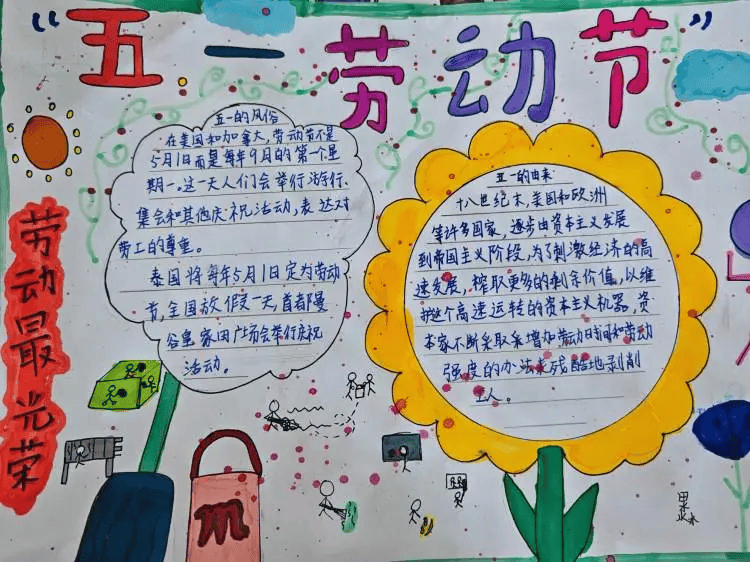 “五一劳动节
劳动最光荣
五一的风俗
在美国和加拿大,劳动节不是
5月1日而是每年9月的第一个星
期一。这一天人们会举行游行、
集会和其他庆祝活动,表达对
劳工的尊重。
泰国将每年5月1日定为劳动
节,全国放假一天,首都曼
谷皇家田广场会举行庆祝
活动。
五一的由来
十八世纪末,美国和欧洲
等许多国家,逐步由资本主义发展
到帝国主义阶段,为了刺激经济的高
速发展,榨取更多的剩余价值,以维
护这个高速运转的资本主义机器,资
本家不断采取采增加劳动时间和劳动
强度的办法来残酷地剥削
工人。
m